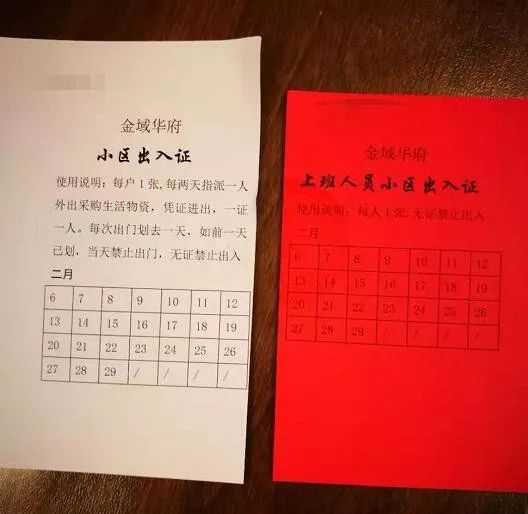 金域华府
小区出入证
使用说明：每户1张,每两天指派一人
外出采购生活物资，凭证进出，一证
一人。每次出门划去一天，如前一天
已划，当天禁止出门，无证禁止出入
二月
6 7 8 9 10 11 12
13 14 15 16 17 18 19
20 21 22 23 24 25 26
27 28 29 / / / /
金域华府
上班人员小区出入证
使用说明：每人1张,无证禁止出入
二月
6 7 8 9 10 11 12
13 14 15 16 17 18 19
20 21 22 23 24 25 26
27 28 29 / / / /